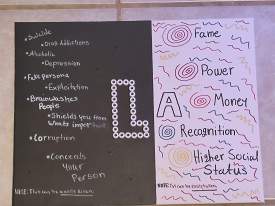 • Suicide
• Drug Addictions
• Alcoholic
• Depression
• Fake persona
• Exploitation
• Brainwashes
People
• Shields you from
whats important
• Corruption
• Conceals
Your
Person
L
A
Fame
Power
Money
Recognition
Higher Social
Status
NOTE:
NOTE: